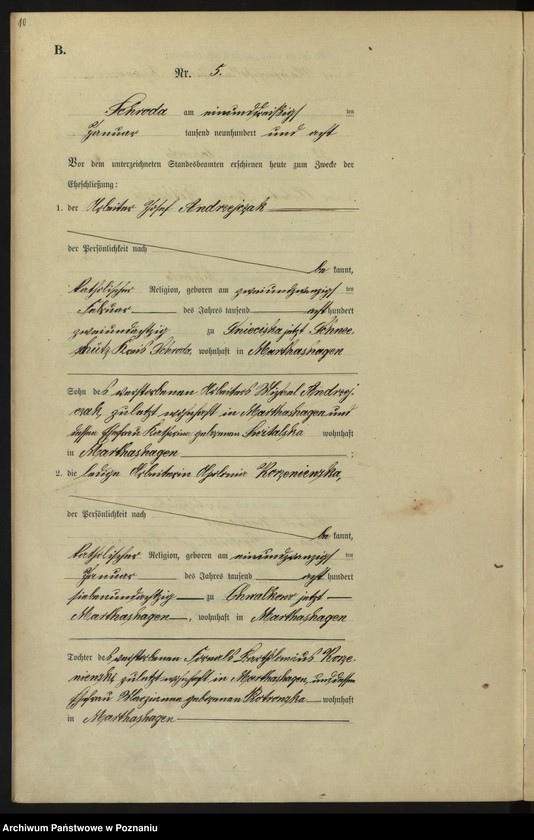 10
B.
Nr. 5.
Schroda am einunddreißigsten
Januar tausend neunhundert und acht
Vor dem unterzeichneten Standesbeamten erschienen heute zum Zwecke der
Eheschließung:
1. der Arbeiter Josef Andrzejczak
der Persönlichkeit nach
be kannt,
katholischer Religion, geboren am zweiundzwanzigsten
Februar des Jahres tausend acht hundert
zweiundachtzig zu Gniecicka jetzt
Kreis Schroda, wohnhaft in Marthashagen
Sohn des verstorbenen Arbeiters Andrzej-
czak, zuletzt wohnhaft in Marthashagen und
dessen Ehefrau Katharina geborenen wohnhaft
in Marthashagen ;
2. die ledige Arbeiterin Apolonia Korzeniewska,
der Persönlichkeit nach
be kannt,
katholischer Religion, geboren am einundzwanzigsten
Januar des Jahres tausend acht hundert
siebenundachtzig zu Chwalkowo jetzt
Marthashagen, wohnhaft in Marthashagen
Tochter des verstorbenen Fornals Bartholomäus Korze-
niewski zuletzt wohnhaft in Marthashagen, und dessen
Ehefrau Maryanna geborenen wohnhaft
in Marthashagen
Archiwum Państwowe w Poznaniu